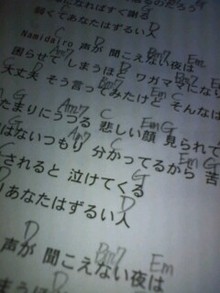 になればすぐ謝る
弱くてあなたはずるい人
C D Bm7 Em
Namidairo 声が 聞こえない夜は
Bm7 D
困らせて しまうほど ワガママにな
Am7 C Em C
大丈夫 そう言ってみたけど そんなは
G Am7 C Em G
たまりにうつる 悲しい顔 見られて
Am7 C Em
はないつもり 分かってるから 苦
G
されると 泣けてくる
D
あなたはずるい人
D Bm7 Em
声が 聞こえない夜は
D
まうほど